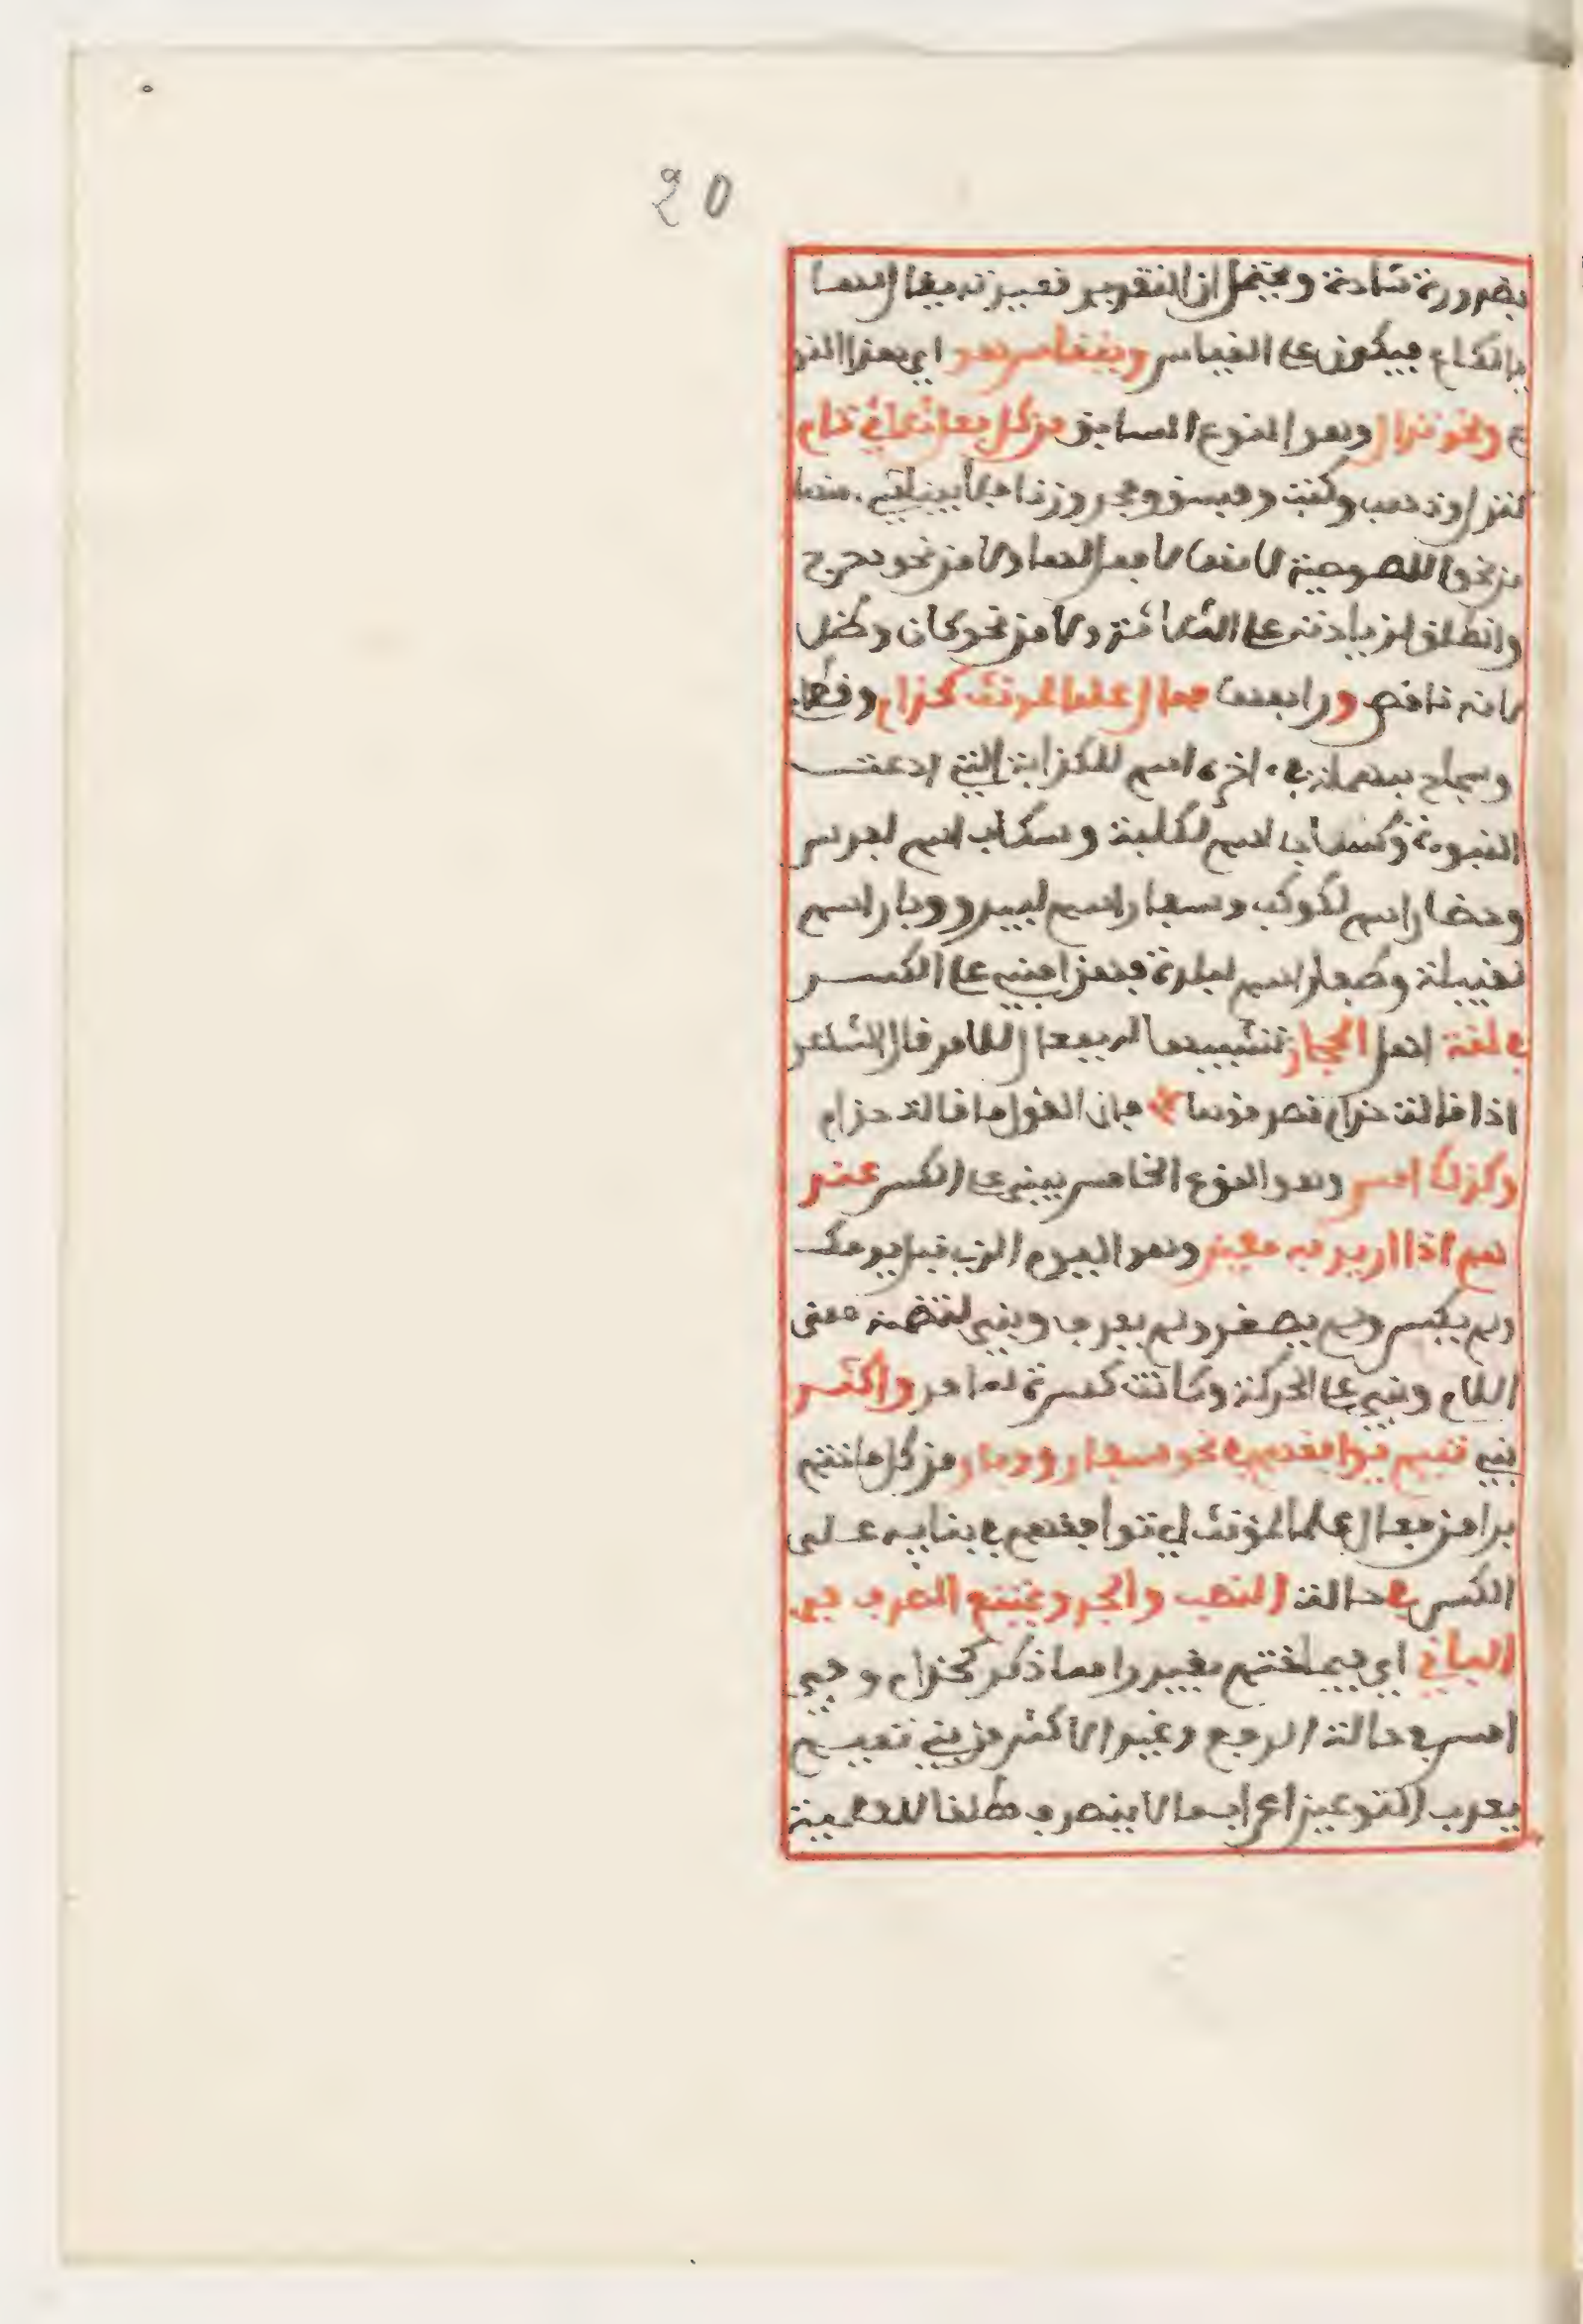 20
بضرورة شاذة ويحتمل ان التقدير قعيدة يقال لها
يالكاع فيكون على القياس وينقاس هو اي هذا النو
ع ونحو نزال وهو النوع السابق من كل فعل ثلاثي تام
كنزل وذهب وكتب وفسق وفجر وزنا فلا يبنى منها
من نحو اللصوصية لانها لا فعل لها ولا من نحو دحرج
وانطلق لزيادته على الثلاثة ولا من نحو كان وظل
لانه ناقص ورابعها فعال علما لمؤنث كحذام وقطام
وسجاح بمهملة في اخره اسم للكذابة التي ادعت
النبوءة وكساب اسم لكلبة وسكاب اسم لفرس
وحضار اسم لكوكب وسفار اسم لبير ووبار اسم
لقبيلة وظفار اسم لبلدة فهذا مبني على الكسر
في لغة اهل الحجاز تشبيها له بفعال للامر قال الشاعر
اذا قالت حذام فصدقوها فان القول ما قالت حذام
وكذلك امس وهو النوع الخامس يبنى على الكسر عند
هم اذا اريد به معين وهو اليوم الذي قبل يومك
ولم يكسر ولم يصغر ولم يعرف وبني لتضمنه معنى
اللام وبني على الحركة وكانت كسرة لما مر واكثر
بني تميم يوافقهم في نحو سفار ووبار من كل ما ختم
برا من فعال علما لمؤنث اي توافقهم في بنايه على
الكسر في حالة النصب والجر ويمنع الصرف في
الباقي اي فيما ختم بغير را مما ذكر كحذام وفي
امس في حالة الرفع وغير الاكثر من بني تميم
يعرب النوعين اعراب ما لا ينصرف مطلقا للعلمية